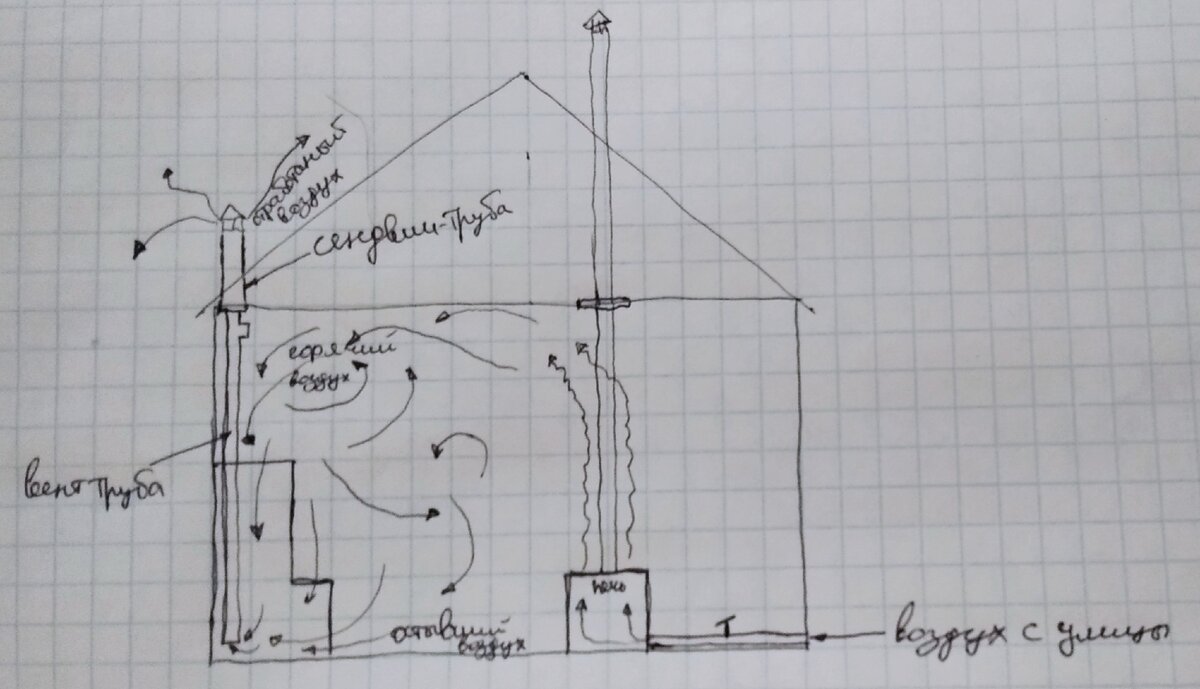 отработаный
воздух
сендвич-труба
горячий
воздух
вент труба
печь
Т
остывший
воздух
воздух с улицы